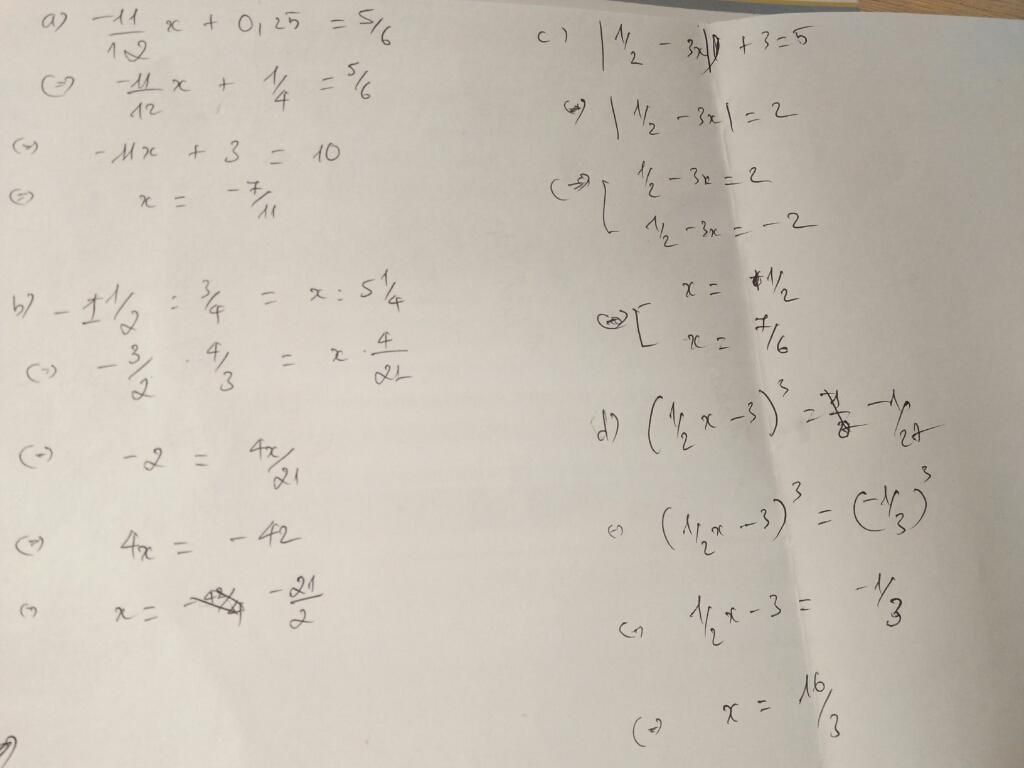 a) -11/12 x + 0,25 = 5/6
(=) -11/12 x + 1/4 = 5/6
(=) -11x + 3 = 10
(=) x = -7/11
b) -1 1/2 : 3/4 = x : 5 1/4
(=) -3/2 . 4/3 = x . 4/21
(=) -2 = 4x/21
(=) 4x = -42
(=) x = -21/2
c) |1/2 - 3x| + 3 = 5
(=) |1/2 - 3x| = 2
(=) [ 1/2 - 3x = 2
1/2 - 3x = -2
(=) [ x = 1/2
x = 7/6
d) (1/2 x - 3)³ = -1/27
(=) (1/2 x - 3)³ = (-1/3)³
(=) 1/2 x - 3 = -1/3
(=) x = 16/3